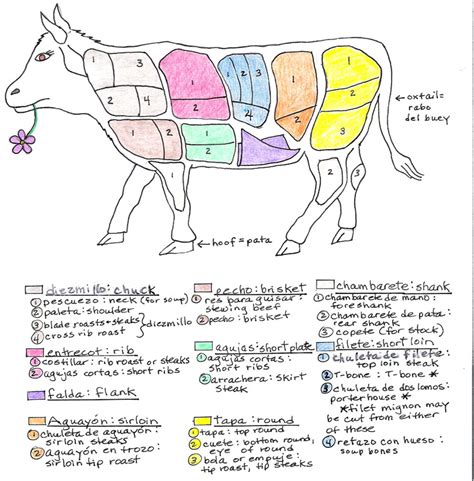 1
3
2
4
1
2
1
2
3
4
1
2
1
2
3
1
2
1
2
1
2
oxtail=
rabo
del buey
hoof = pata
diezmillo: chuck
1 pescuezo: neck (for soup)
2 paleta: shoulder
3 blade roasts+steaks
4 cross rib roast
} diezmillo
pecho: brisket
1 res para guisar:
stewing beef
2 pecho: brisket
chambarete: shank
1 chambarete de mano:
foreshank
2 chambarete de pata:
rear shank
3 copete (for stock)
entrecot: rib
1 costillar: rib roast or steaks
2 agujas cortas: short ribs
agujas: short plate
1 agujas cortas:
short ribs
2 arrachera: skirt
steak
filete: short loin
1 chuleta de filete:
top loin steak
2 T-bone: T-bone *
3 chuleta de dos lomos:
porterhouse *
*filet mignon may
be cut from either
of these
4 retazo con hueso:
soup bones
falda: flank
Aguayón: sirloin
1 chuleta de aguayón:
sirloin steaks
2 aguayón en trozo:
sirloin tip roast
tapa: round
1 tapa: round
2 cuete: bottom round,
eye of round
3 bola or empuje:
tip roast, tip steaks